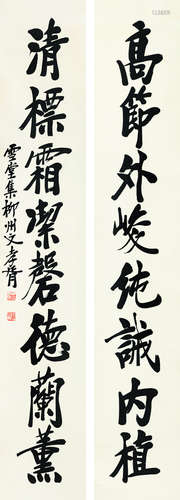 高節外峻純誠內植
清標霜潔馨德蘭薰
雪堂集柳州文孝胥